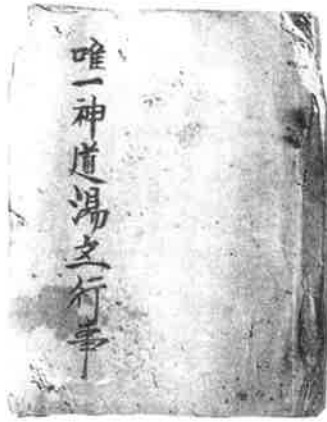 唯一神道湯之行事